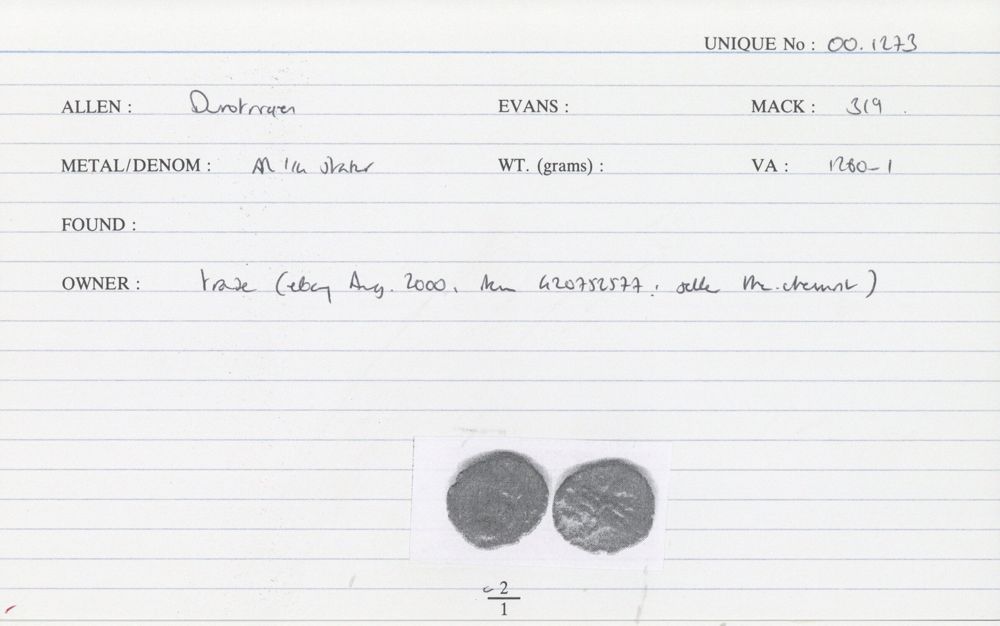 UNIQUE No : 00.1273
ALLEN : Durotrigan EVANS : MACK : 319
METAL/DENOM : AR 1/4 stater WT. (grams) : VA : 1260-1
FOUND :
OWNER : trade (ebay Aug. 2000, item 420752577: seller the.chemist)
c 2
1